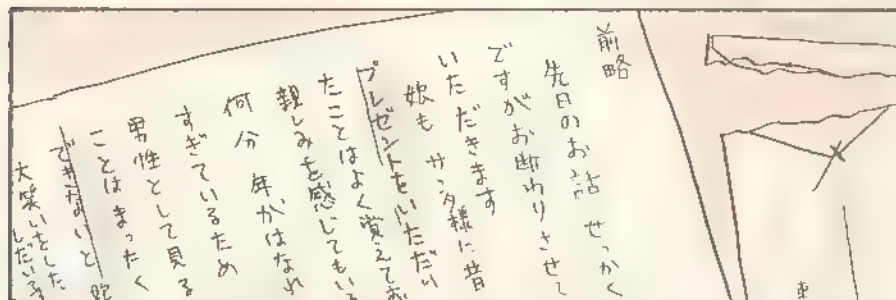 前略
先日のお話 せっかく
ですがお断わりさせて
いただきます
娘も サンタ様に昔
プレゼントをいただい
たことはよく覚えてお
親しみを感じてもい
何分 年がはなれ
すぎているため
男性として見る
ことはまったく
できないと
大笑いをした
しだいで
東